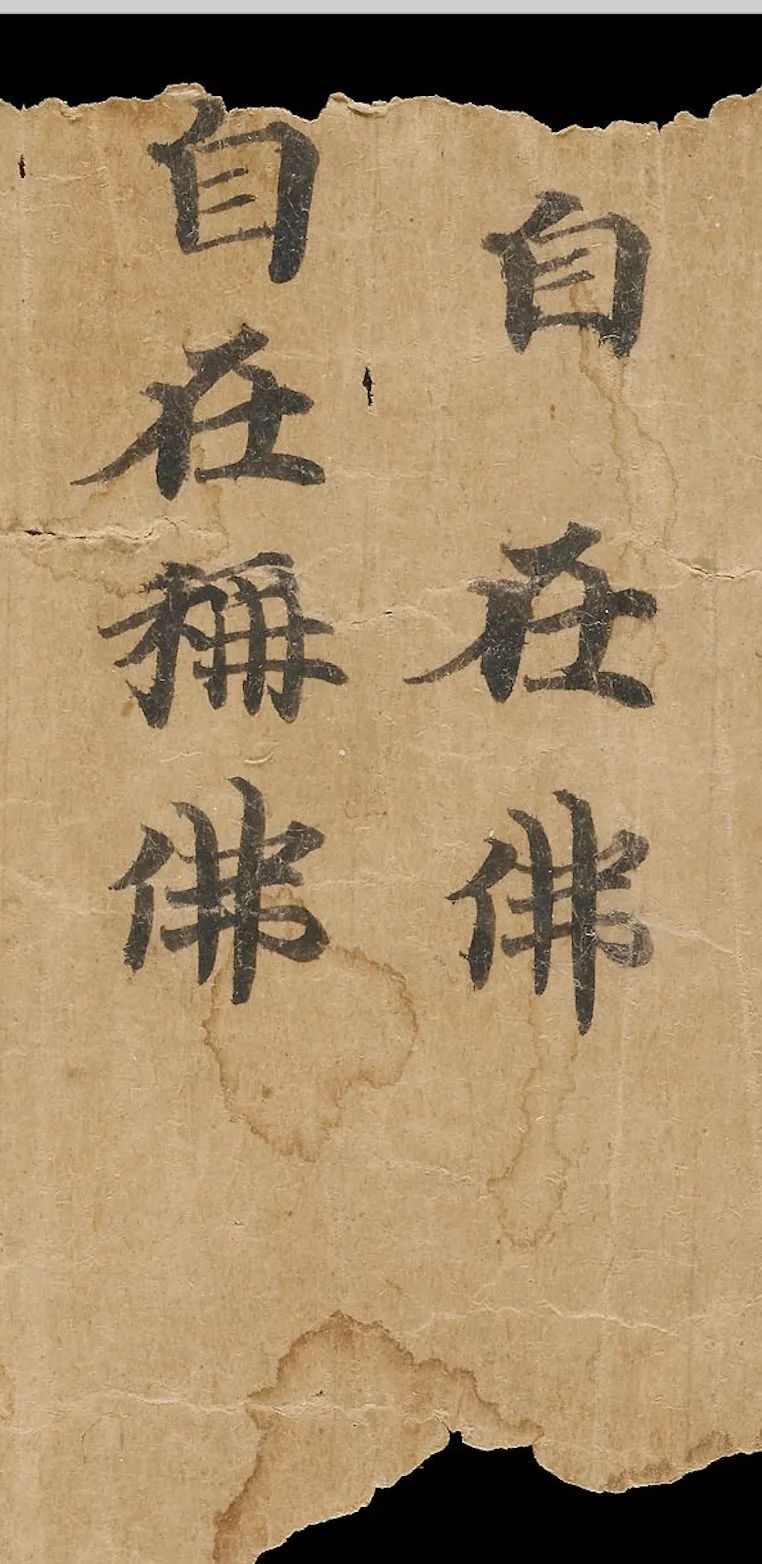 自在佛
自在稱佛